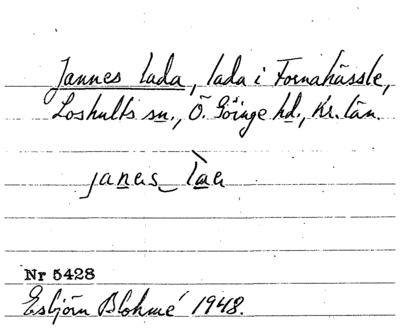 Jannes lada, lada i Fornahässle,
Loshults sn., Ö. Göinge hd., Kr. län.
janas_ la
Nr 5428
Esbjörn Blohmé 1948.